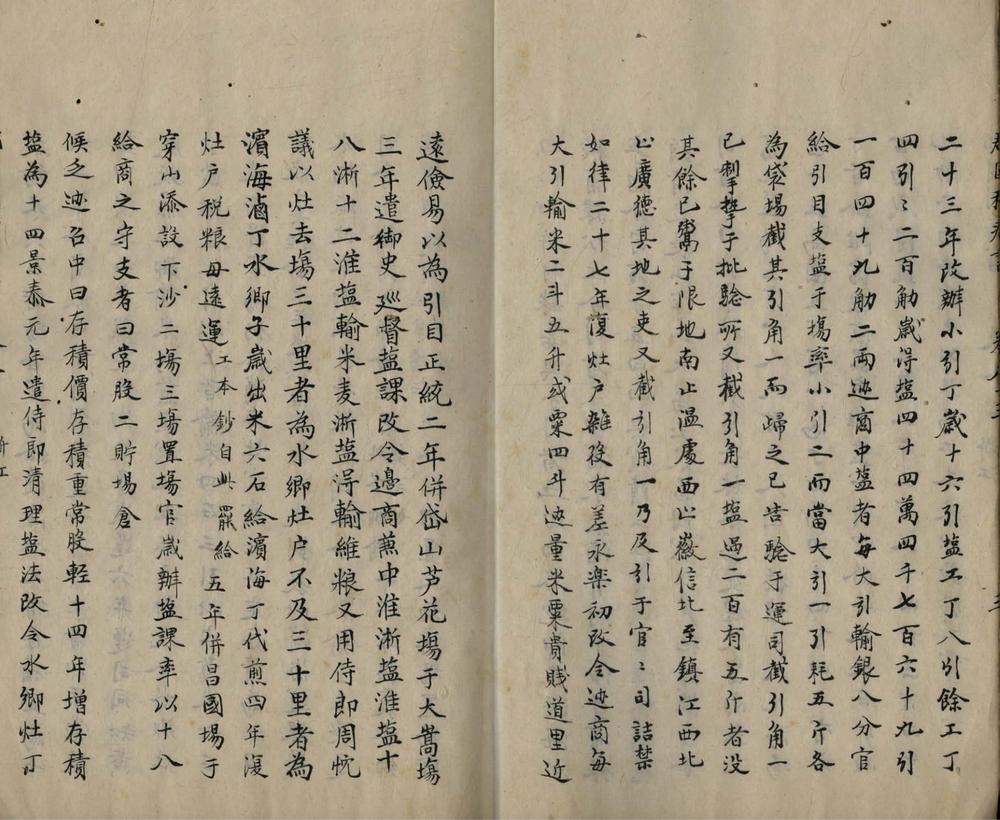 二十三年改辦小引丁歲十六引塩工丁八引餘工丁
四引〻二百觔歲得塩四十四萬四千七百六十九引
一百四十九觔二兩迯商中塩者每大引輸銀八分官
給引目支塩于塲率小引二而當大引一引耗五斤各
為袋塲截其引角一而歸之已告驗于運司截引角一
已掣摯于批驗所又截引角一塩過二百有五斤者没
其餘已鬻于限地南止温處西止徽信北至鎮江西北
止廣德其地之吏又截引角一乃及引于官〻司詰禁
如律二十七年復灶户雜役有差永樂初改令迯商每
大引輸米二斗五升或粟四斗迯量米粟貴賎道里近
遠儉易以為引目正統二年併岱山芦花塲于大嵩塲
三年遣御史廵督塩課改令邊商蒸中淮淅塩淮塩十
八淅十二淮塩輸米麦淅塩淂輸維粮又用侍郎周忱
議以灶去塲三十里者為水郷灶户不及三十里者為
濵海滷丁水郷子歲出米六石給濵海丁代煎四年復
灶户税粮毋遠運工本鈔自此罷給五年併昌國場于
穿山添設下沙二塲三塲置塲官歲辦塩課率以十八
給商之守支者曰常股二貯塲倉
候乏迯召中曰存積價存積重常股軽十四年増存積
塩為十四景泰元年遣侍郎清理塩法改令水郷灶丁